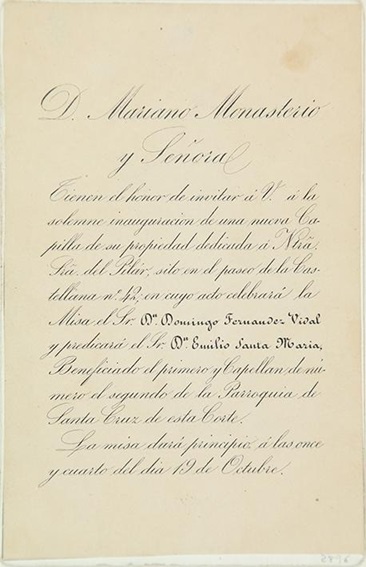 D. Mariano Monasterio
y Señora
Tienen el honor de invitar á V. á la
solemne inauguracion de una nueva Ca-
pilla de su propiedad dedicada á Ntrā.
Srā. del Pilar, sito en el paseo de la Cas-
tellana nº 42, en cuyo acto celebrará la
Misa el Sr. Dn. Domingo Fernandez Vidal
y predicará el Sr. Dn. Emilio Santa Maria,
Beneficiado el primero y Capellan de nú-
mero el segundo de la Parroquia de
Santa Cruz de esta Corte.
La misa dará principio á las once
y cuarto del dia 19 de Octubre.